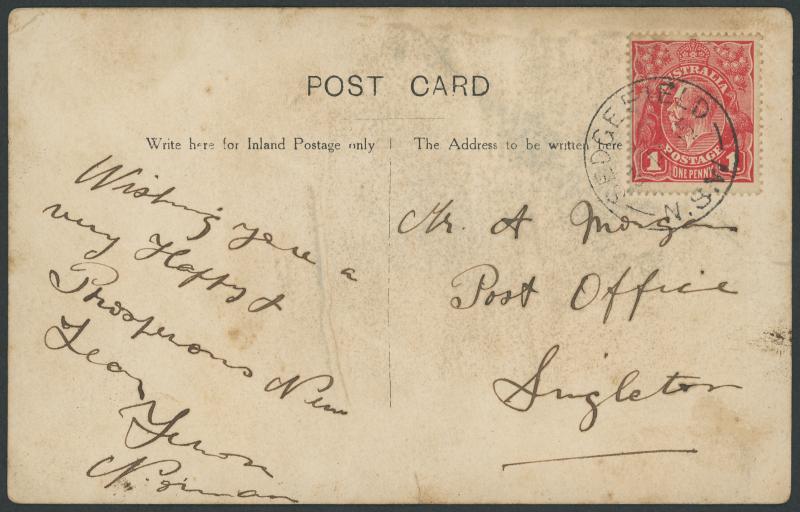 POST CARD
Write here for Inland Postage only
The Address to be written here
AUSTRALIA
1 POSTAGE 1
ONE PENNY
SEDGEFIELD
N.S.W.
Wishing you a
very Happy &
Prosperous New
Year
Norman
Mr. A Morgan
Post Office
Singleton